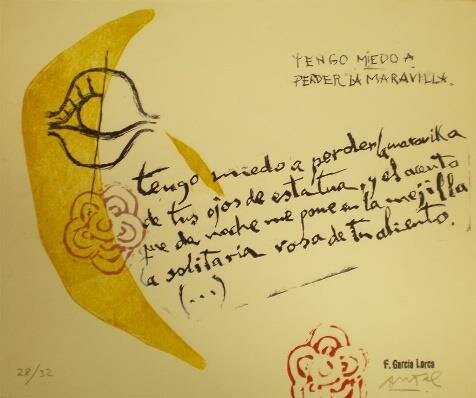 TENGO MIEDO A
PERDER LA MARAVILLA.
tengo miedo a perder la maravilla
de tus ojos de estatua, y el acento
que de noche me pone en la mejilla
la solitaria rosa de tu aliento.
(...)
28/32
F. García Lorca